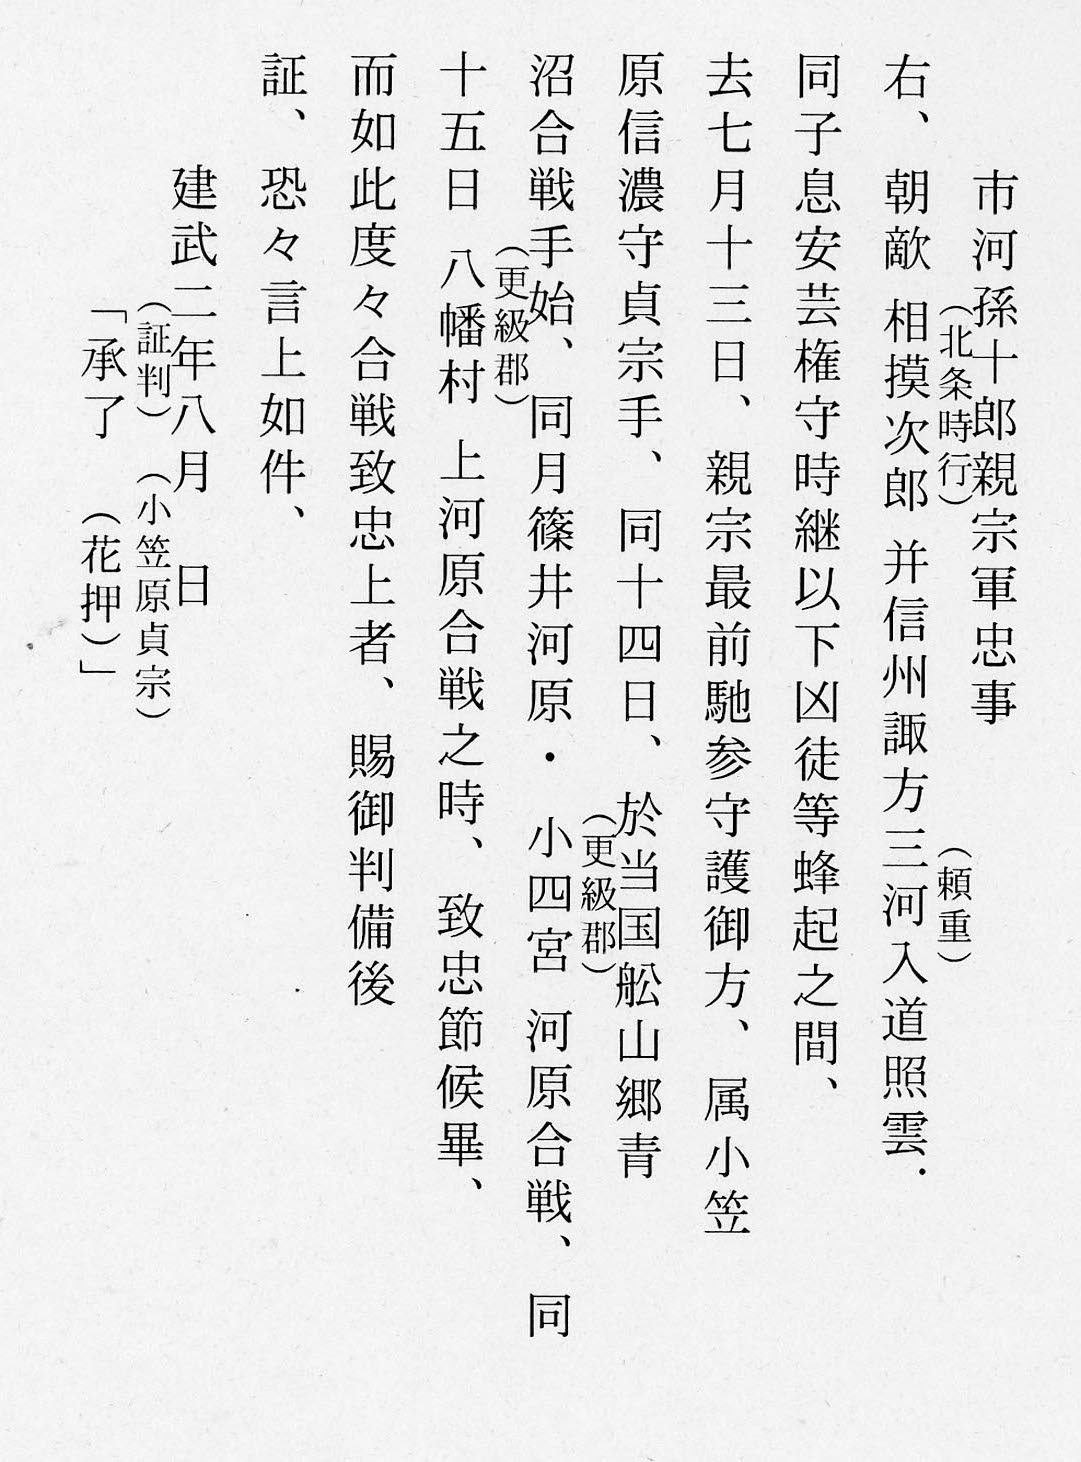 市河孫十郎親宗軍忠事
右、朝敵相摸次郎并信州諏方三河入道照雲・
（北条時行）
（頼重）
同子息安芸権守時継以下凶徒等蜂起之間、
去七月十三日、親宗最前馳参守護御方、属小笠
原信濃守貞宗手、同十四日、於当国舩山郷青
（更級郡）
沼合戦手始、同月篠井河原・小四宮河原合戦、同
（更級郡）
十五日八幡村上河原合戦之時、致忠節候畢、
而如此度々合戦致忠上者、賜御判備後
証、恐々言上如件、
建武二年八月　日
（証判）（小笠原貞宗）
「承了（花押）」